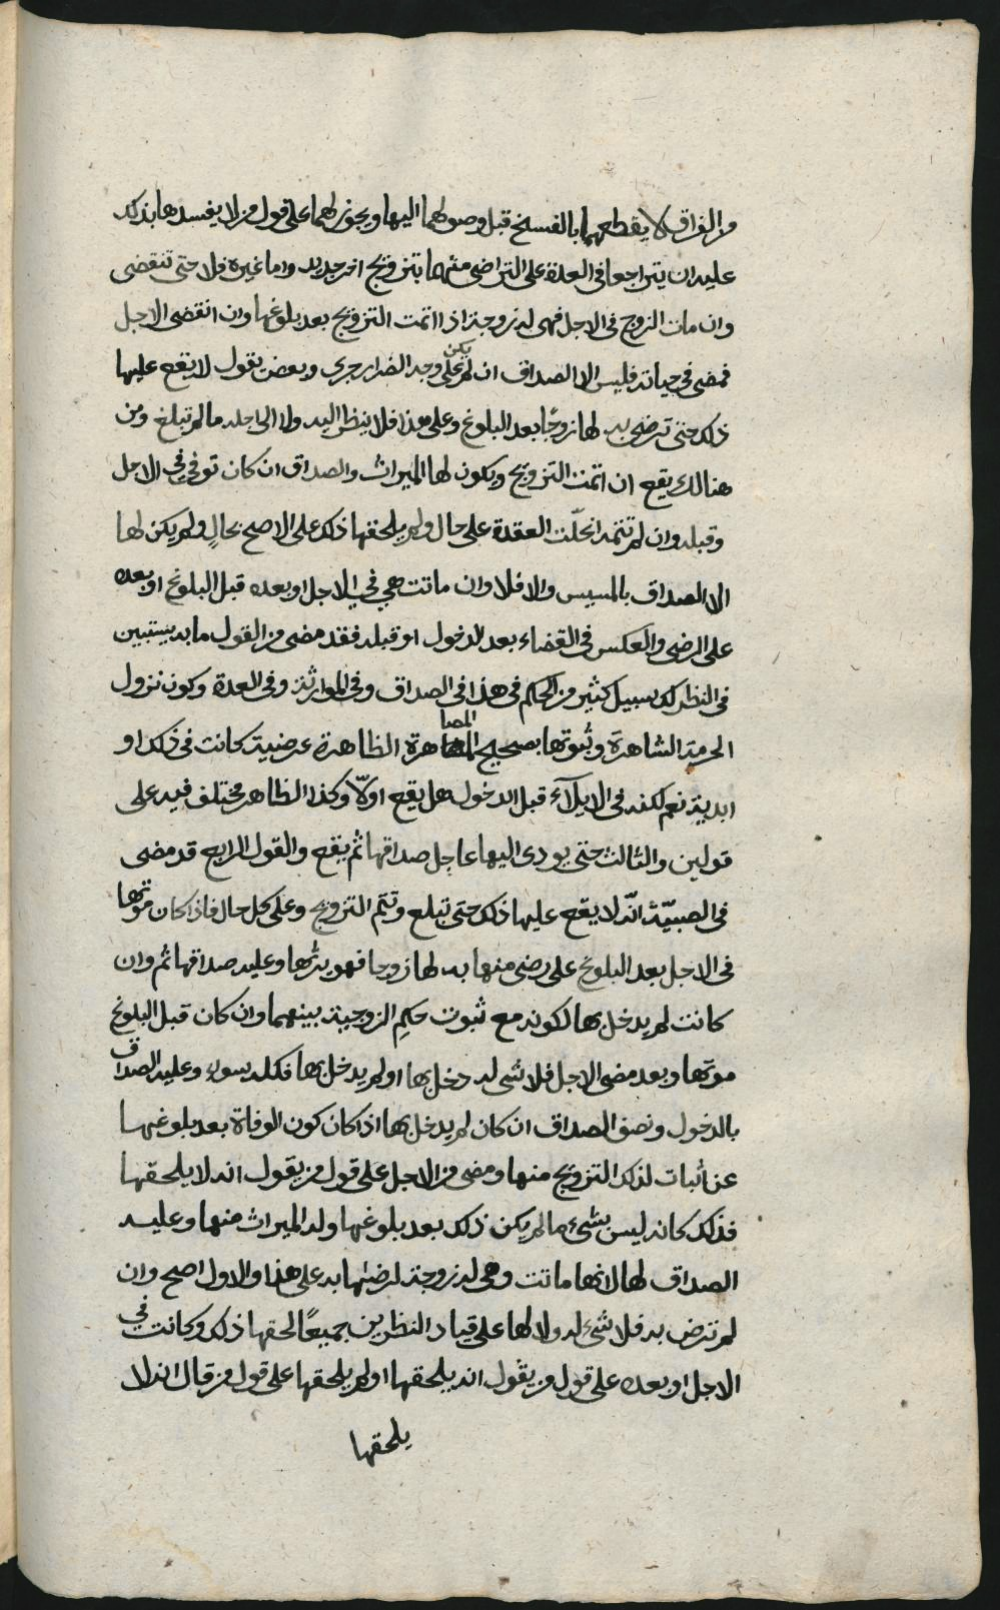 من الفراق لا يقطعهما بالفسخ قبل وصولهما اليها ويجوز لهما على قول من لا يفسدها بذلك
عليه ان يتراجعا في العدة على التراضي منهما بتزويج اخر جديد واما غيره فلا حتى تنقضي
وان مات الزوج في الاجل فهي له زوجة اذا اتمت التزويج بعد بلوغها وان انقضى الاجل
فمضى في حياته فليس الا الصداق ان لم يكن على وجه الضرار جرى وبعض يقول لا يقع عليها
ذلك حتى ترضى به لها زوجًا بعد البلوغ وعلى هذا فلا ينظر اليه ولا الى اجله ما لم تبلغ ومن
هنالك يقع ان اتمت التزويج ويكون لها الميراث والصداق ان كان توفي في الاجل
وقبله وان لم تتمه انحلّت العقدة على حال ولم يلحقها ذلك على الاصح بحالٍ ولم يكن لها
الا الصداق بالمسيس والا فلا وان ماتت هي في الاجل او بعده قبل البلوغ او بعده
على الرضى والعكس في القضاء بعد الدخول او قبله فقد مضى من القول ما به يستبين
في النظر لك سبيل كثير من الحكم في هذا في الصداق وفي الموارثة وفي العدة وكون نزول
الحرمة الشاهرة وثبوتها بصحيح المصاهرة الظاهرة عرضية كانت في ذلك او
ابدية نعم لكنه في الايلآء قبل الدخول هل يقع اولًا وكذا الظاهر مختلف فيه على
قولين والثالث حتى يودي اليها عاجل صداقها ثم يقع والقول الرابع قد مضى
في الصبيّة انّه لا يقع عليها ذلك حتى تبلغ وتتم التزويج وعلى كل حال فاذا كان موتها
في الاجل بعد البلوغ على رضى منها به لها زوجا فهو يرثها وعليه صداقها ثم وان
كانت لم يدخل بها لكونه مع ثبوت حكم الزوجية بينهما وان كان قبل البلوغ
موتها وبعد مضي الاجل فلا شي له دخل بها او لم يدخل بها فكله سواء وعليه الصداق
بالدخول ونصف الصداق ان كان لم يدخل بها اذا كان كون الوفاة بعد بلوغها
عن اثبات لذلك التزويج منها ومضى من الاجل على قول من يقول انه لا يلحقها
فذلك كانه ليس بشيء ما لم يكن ذلك بعد بلوغها وله الميراث منها وعليه
الصداق لها لانها ماتت وهي له زوجة لرضاها به على هذا والاول اصح وان
لم ترض به فلا شيء له ولا لها على قياد النظرين جميعًا لحقها ذلك وكانت في
الاجل او بعده على قول من يقول انه يلحقها او لم يلحقها على قول من قال انه لا
يلحقها